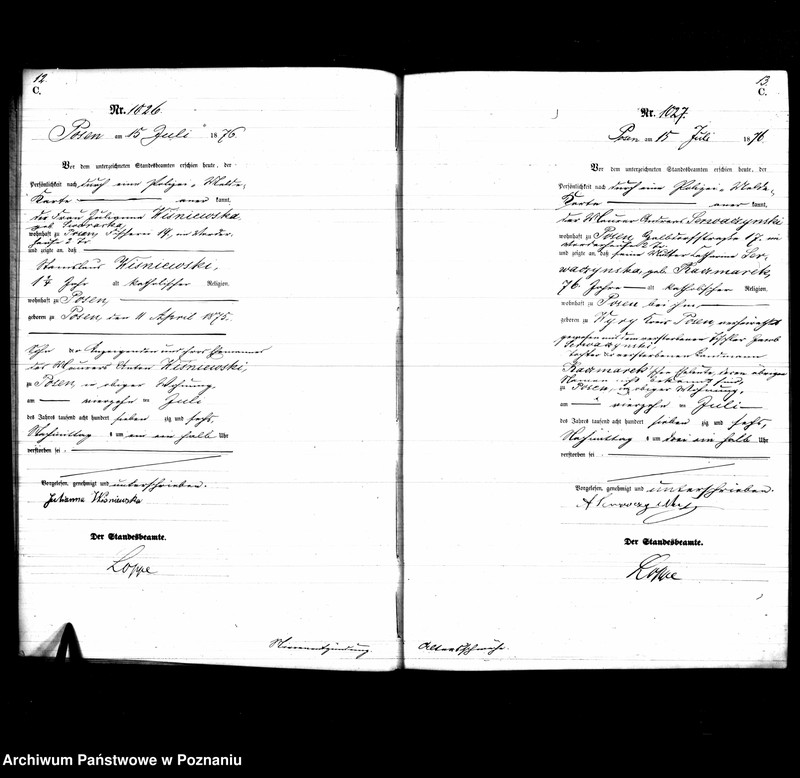 12.
C.
Nr. 1026.
Posen am 15 Juli 1876
Vor dem unterzeichneten Standesbeamten erschien heute, der
Persönlichkeit nach durch eine Polizei-Melde-
Karte anerkannt,
die Frau Julianna Wiśniewska
geb.
wohnhaft zu Posen, Fischerei 14, im Vorder-
hause 2 Tr
und zeigte an, daß
Stanislaus Wiśniewski,
1¼ Jahr alt katholischer Religion,
wohnhaft zu Posen,
geboren zu Posen den 11 April 1875.
Sohn der Anzeigenden und ihres Ehemannes
des Maurers Anton Wiśniewski,
zu Posen, in obiger Wohnung,
am vierzehn ten Juli
des Jahres tausend acht hundert siebenzig und sechs,
Nachmittag s um ein ein halb Uhr
verstorben sei
Vorgelesen, genehmigt und unterschrieben.
Julianna Wiśniewska
Der Standesbeamte.
Loppe
Nierenentzündung.
13.
C.
Nr. 1027.
Posen am 15 Juli 1876.
Vor dem unterzeichneten Standesbeamten erschien heute, der
Persönlichkeit nach durch eine Polizei-Melde-
Karte anerkannt,
der Maurer Andreas Serwaczynski
wohnhaft zu Posen, Halbdorfstraße 17. im
Vorderhause 2 Tr.
und zeigte an, daß seine Mutter Catharina Ser-
waczynska, geb. Kaczmarek,
76 Jahre alt katholischer Religion,
wohnhaft zu Posen bei ihm,
geboren zu Kreis Posen, verheirathet
gewesen mit dem verstorbenen Tischler Jacob
Serwaczynski,
Tochter der verstorbenen Landmann
Kaczmarek'schen Eheleute, deren übrigen
Namen nicht bekannt sind,
zu Posen, in obiger Wohnung,
am vierzehn ten Juli
des Jahres tausend acht hundert siebenzig und sechs,
Nachmittag s um drei ein halb Uhr
verstorben sei
Vorgelesen, genehmigt und unterschrieben.
Der Standesbeamte.
Loppe
Altersschwäche.
Archiwum Państwowe w Poznaniu